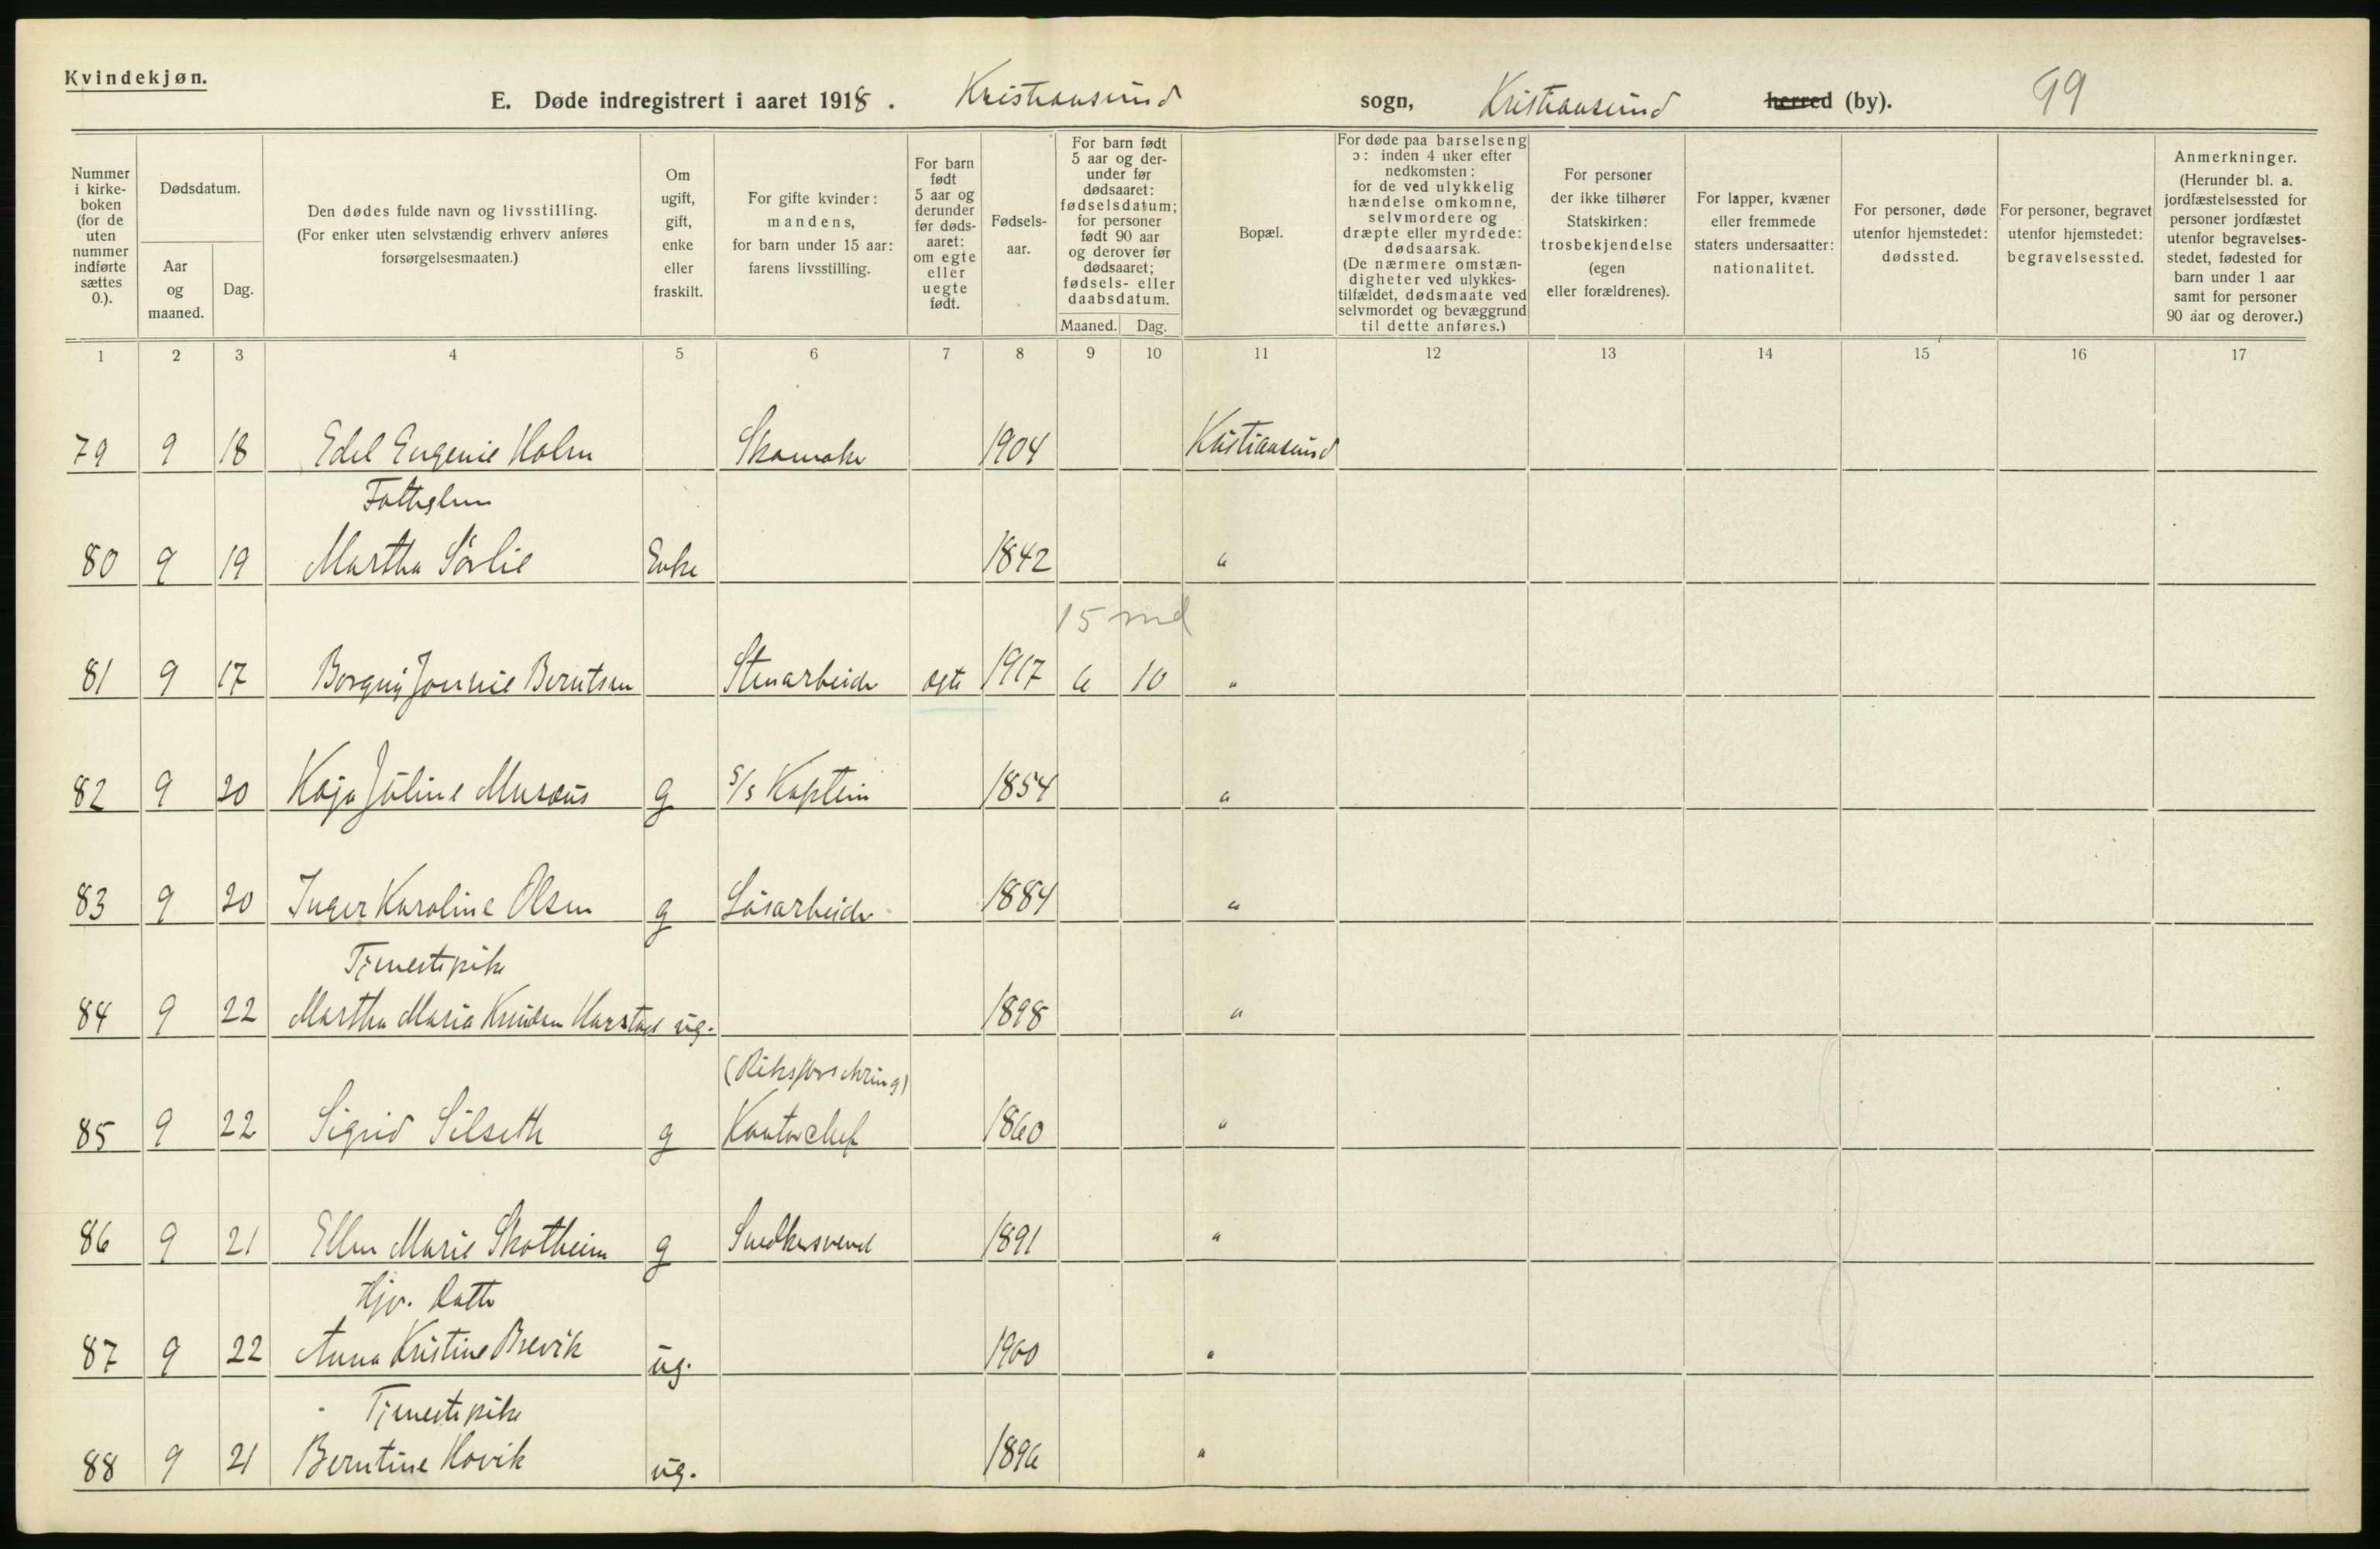 Kvindekjøn.
E. Døde indregistrert i aaret 1918. Kristiansund sogn, Kristiansund herred (by). 99
Nummer i kirkeboken (for de uten nummer indførte sættes 0.).
Dødsdatum.
Aar og maaned.
Dag.
Den dødes fulde navn og livsstilling. (For enker uten selvstændig erhverv anføres forsørgelsesmaaten.)
Om ugift, gift, enke eller fraskilt.
For gifte kvinder: mandens, for barn under 15 aar: farens livsstilling.
For barn født 5 aar og derunder før dødsaaret: om egte eller uegte født.
Fødselsaar.
For barn født 5 aar og derunder før dødsaaret: fødselsdatum; for personer født 90 aar og derover før dødsaaret; fødsels- eller daabsdatum.
Maaned. Dag.
Bopæl.
For døde paa barselseng ɔ: inden 4 uker efter nedkomsten: for de ved ulykkelig hændelse omkomne, selvmordere og dræpte eller myrdede: dødsaarsak. (De nærmere omstændigheter ved ulykkestilfældet, dødsmaate ved selvmordet og bevæggrund til dette anføres.)
For personer der ikke tilhører Statskirken: trosbekjendelse (egen eller forældrenes).
For lapper, kvæner eller fremmede staters undersaatter: nationalitet.
For personer, døde utenfor hjemstedet: dødssted.
For personer, begravet utenfor hjemstedet: begravelsessted.
Anmerkninger. (Herunder bl. a. jordfæstelsessted for personer jordfæstet utenfor begravelsesstedet, fødested for barn under 1 aar samt for personer 90 aar og derover.)
1 2 3 4 5 6 7 8 9 10 11 12 13 14 15 16 17
79 9 18 Edel Eugenie Holm Skomaker 1904 Kristiansund
Fattiglem
80 9 19 Martha Sørlie Enke 1842 "
15 md
81 9 17 Borgny Jonnie Berntsen Stenarbeider egte 1917 6 10 "
82 9 20 Kaja Juline Musæus g S/s Kaptein 1854 "
83 9 20 Inger Karoline Olsen g Løsarbeider 1884 "
Tjenestepike
84 9 22 Martha Maria Knudsen Harstad ug. 1898 "
(Riksforsikring)
85 9 22 Sigrid Silseth g Kontorchef 1860 "
86 9 21 Ellen Marie Skotheim g Snedkersvend 1891 "
Hjv. Datter
87 9 22 Anna Kristine Brevik ug. 1900 "
Tjenestepike
88 9 21 Berntine Hovik ug. 1896 "